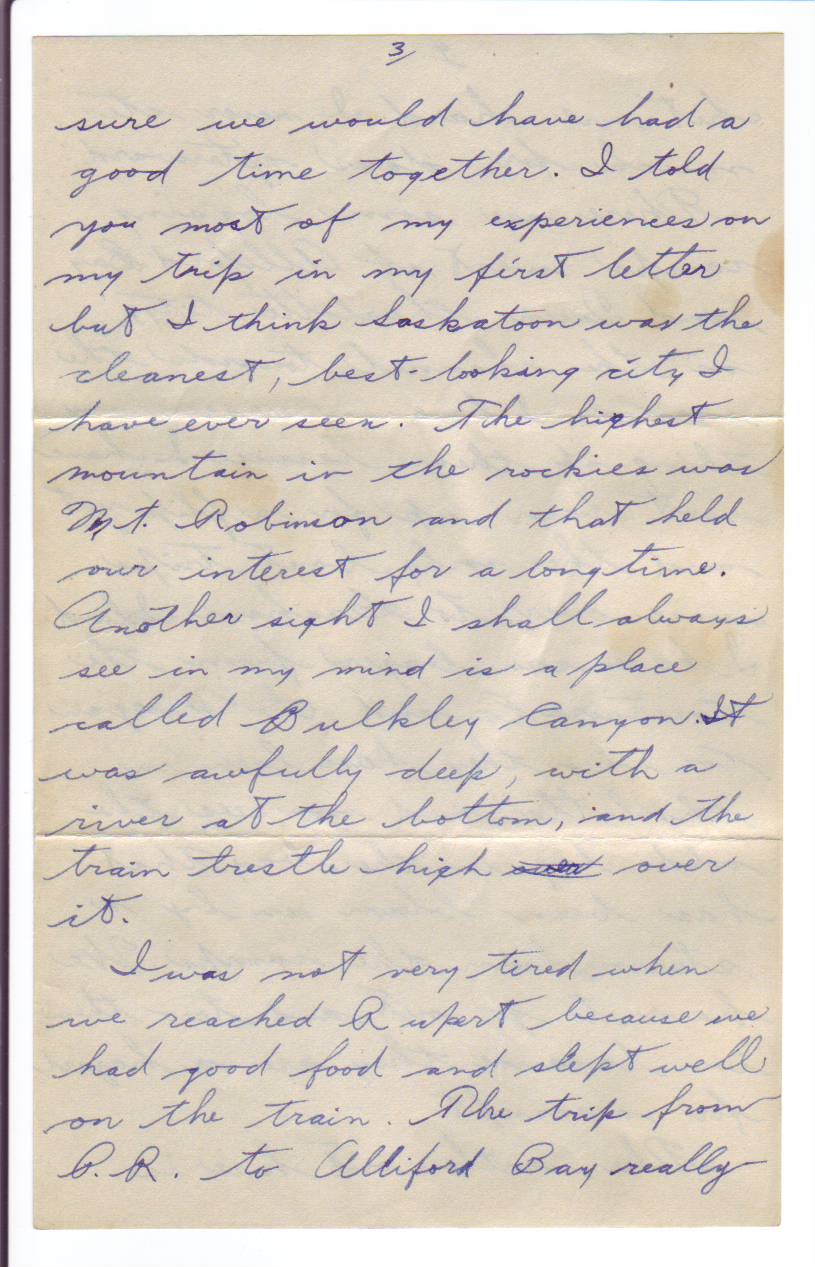 3
sure we would have had a
good time together. I told
you most of my experiences on
my trip in my first letter
but I think Saskatoon was the
cleanest, best-looking city I
have ever seen. The highest
mountain in the rockies was
Mt. Robinson and that held
our interest for a long time.
Another sight I shall always
see in my mind is a place
called Bulkley Canyon. It
was awfully deep, with a
river at the bottom, and the
train trestle high over over
it.
I was not very tired when
we reached Rupert because we
had good food and slept well
on the train. The trip from
P.R. to Alliford Bay really